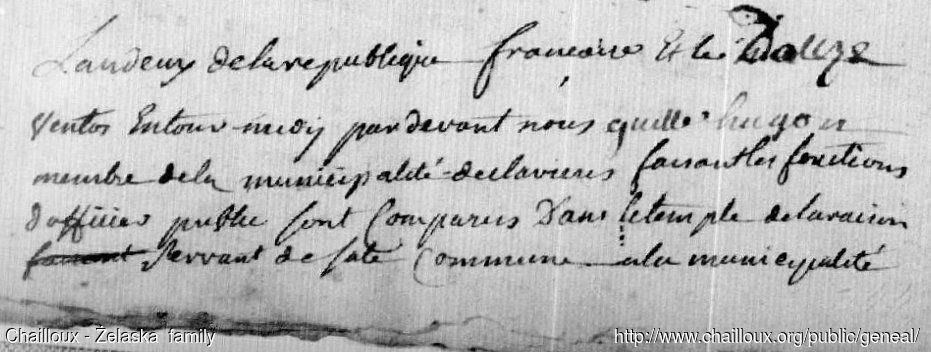 Landeux delarepublique francoise Et le douze
Ventos Entour midy pardevant nous quille hugon
membre dela municipalité declavieres faisantles fonctions
dofficier public sont Comparus Dans letemple delaraison
faisant Servant de sale Commune ala municipalité
Chailloux - Želaska family
http://www.chailloux.org/public/geneal/